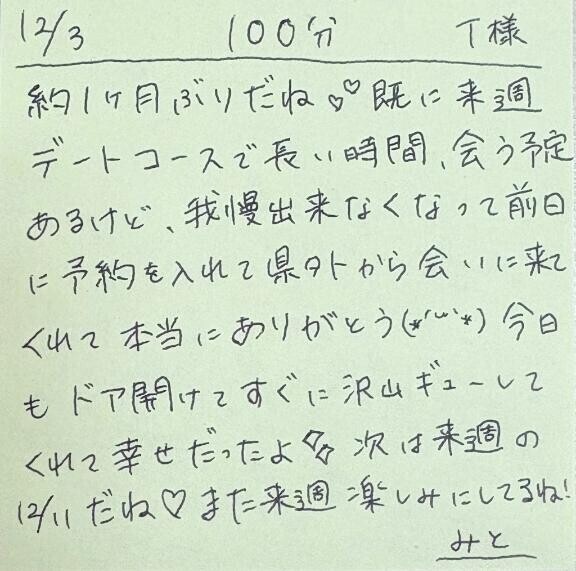 12/3 100分 T様
約1ヶ月ぶりだね♡♡既に来週
デートコースで長い時間、会う予定
あるけど、我慢出来なくなって前日
に予約を入れて県外から会いに来て
くれて本当にありがとう(*´꒳`*)今日
もドア開けてすぐに沢山ギューして
くれて幸せだったよ✨次は来週の
12/11だね♡また来週楽しみにしてるね!
みと